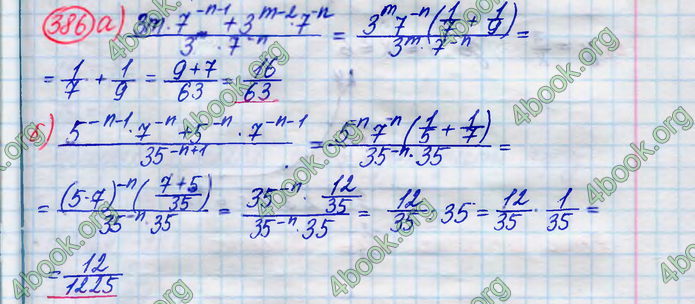 386 а) (3^m · 7^(-n-1) + 3^(m-2) · 7^(-n)) / (3^m · 7^(-n)) = (3^m 7^(-n) (1/7 + 1/9)) / (3^m · 7^(-n)) =
= 1/7 + 1/9 = (9+7)/63 = 16/63
б) (5^(-n-1) · 7^(-n) + 5^(-n) · 7^(-n-1)) / 35^(-n+1) = (5^(-n) 7^(-n) (1/5 + 1/7)) / (35^(-n) · 35) =
= ((5·7)^(-n) ((7+5)/35)) / (35^(-n) · 35) = (35^(-n) · 12/35) / (35^(-n) · 35) = 12/35 · 35 = 12/35 · 1/35 =
= 12/1225
4book.org